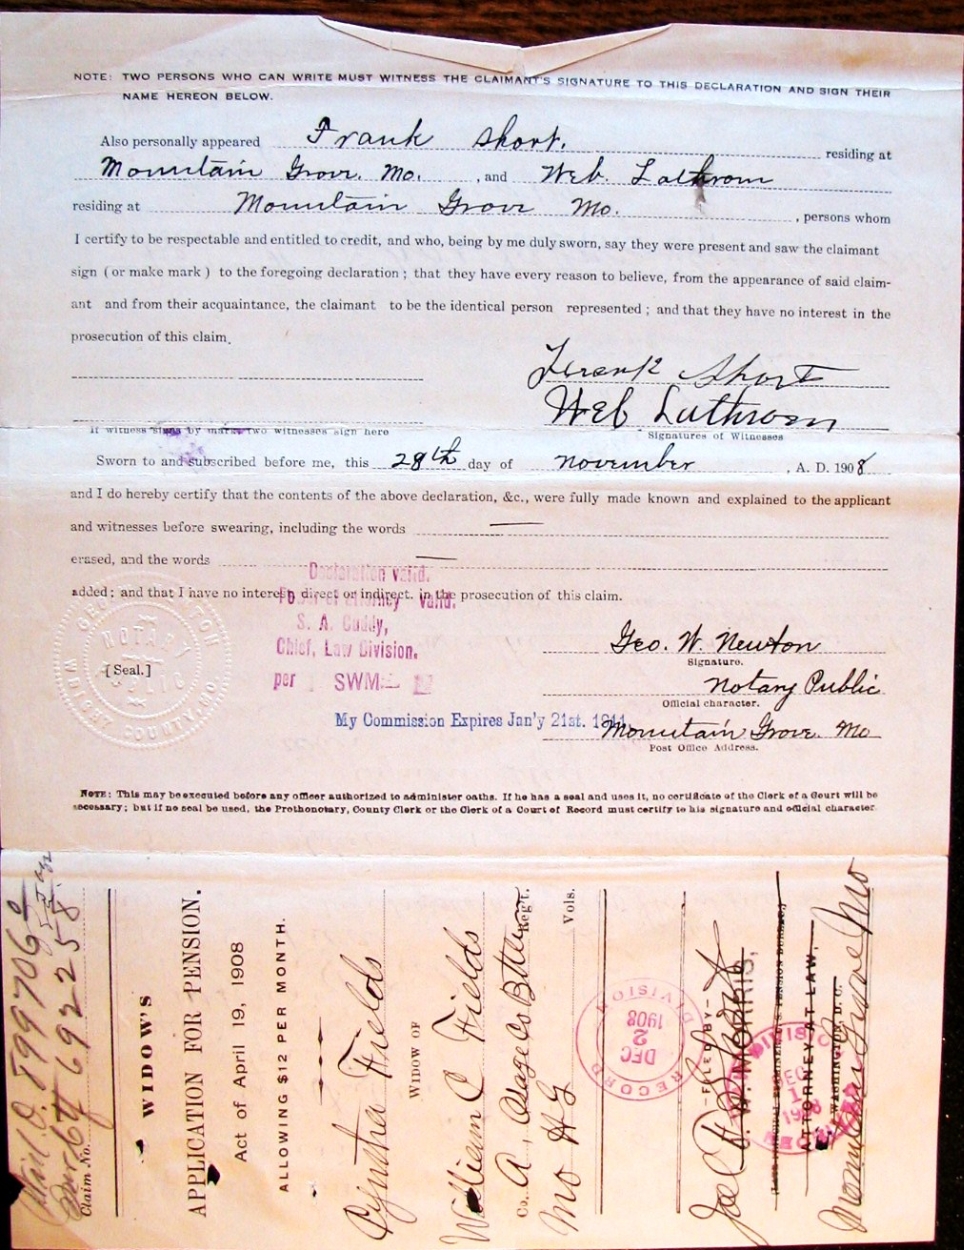 NOTE: TWO PERSONS WHO CAN WRITE MUST WITNESS THE CLAIMANT'S SIGNATURE TO THIS DECLARATION AND SIGN THEIR
NAME HEREON BELOW.
Also personally appeared Frank Short, residing at
Mountain Grove. Mo. , and Web. Lathrom
residing at Mountain Grove Mo. , persons whom
I certify to be respectable and entitled to credit, and who, being by me duly sworn, say they were present and saw the claimant
sign (or make mark) to the foregoing declaration; that they have every reason to believe, from the appearance of said claim-
ant and from their acquaintance, the claimant to be the identical person represented; and that they have no interest in the
prosecution of this claim.
Frank Short
Web Lathrom
If witness signs by mark, two witnesses sign here
Signatures of Witnesses
Sworn to and subscribed before me, this 28th day of November , A. D. 1908
and I do hereby certify that the contents of the above declaration, &c., were fully made known and explained to the applicant
and witnesses before swearing, including the words —
erased, and the words —
Declaration valid.
added; and that I have no interest, direct or indirect, in the prosecution of this claim.
Power of attorney valid.
S. A. Cuddy,
Chief, Law Division.
per SWM
NOTARY PUBLIC
WRIGHT COUNTY, MO.
[Seal.]
Geo. W. Newton
Signature.
Notary Public
Official character.
My Commission Expires Jan'y 21st. 1911.
Mountain Grove. Mo
Post Office Address.
NOTE: This may be executed before any officer authorized to administer oaths. If he has a seal and uses it, no certificate of the Clerk of a Court will be
necessary; but if no seal be used, the Prothonotary, County Clerk or the Clerk of a Court of Record must certify to his signature and official character.
O. 899706
Claim No. 692258
WIDOW'S
APPLICATION FOR PENSION.
Act of April 19, 1908
ALLOWING $12 PER MONTH.
Cynthia Fields
WIDOW OF
William C Fields
Co. A, Osage Co Battery Reg't.
Mo H G Vols.
RECORD DIVISION
DEC 2 1908
—FILED BY—
W. NORRIS,
ATTORNEY AT LAW,
WASHINGTON, D. C.
DEC 1 1908
Mountain Grove Mo